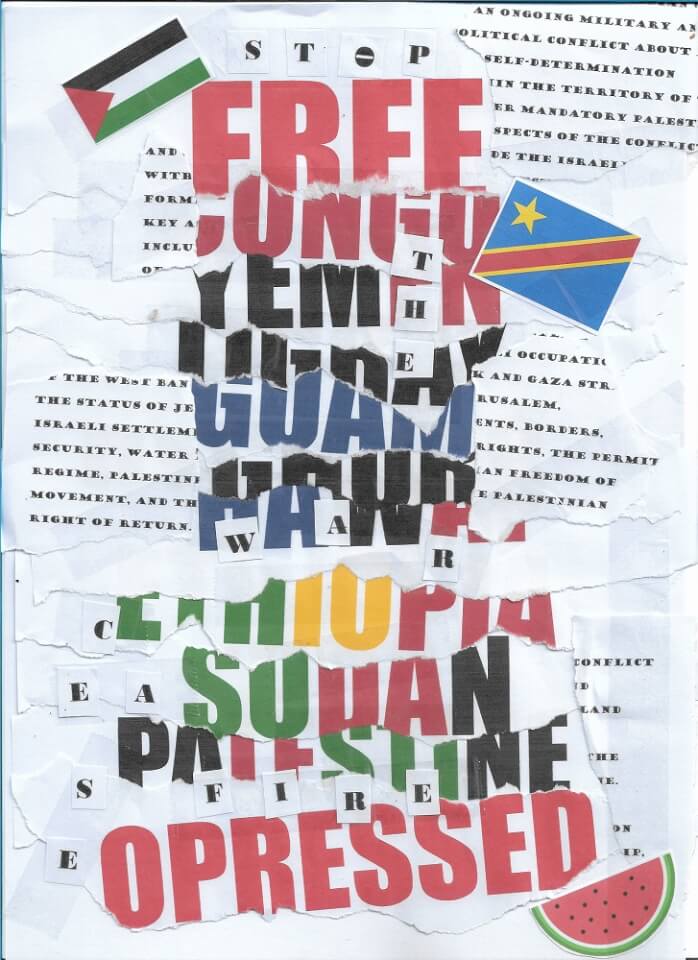 STOP
AN ONGOING MILITARY AN
OLITICAL CONFLICT ABOUT
SELF-DETERMINATION
IN THE TERRITORY OF
ER MANDATORY PALEST
SPECTS OF THE CONFLIC
DE THE ISRAELI
FREE
AND
WITH
FORM
KEY A
INCLU
CONGO
THE
YEMEN
GUAM
OCCUPATIO
THE WEST BAN
K AND GAZA STR
THE STATUS OF JE
RUSALEM,
ISRAELI SETTLEME
ENTS, BORDERS,
SECURITY, WATER
RIGHTS, THE PERMIT
REGIME, PALESTINI
AN FREEDOM OF
MOVEMENT, AND TH
E PALESTINIAN
RIGHT OF RETURN.
WAR
ETHIOPIA
CEASE
SUDAN
CONFLICT
LAND
PALESTINE
FIRE
OPRESSED
ON
IP.